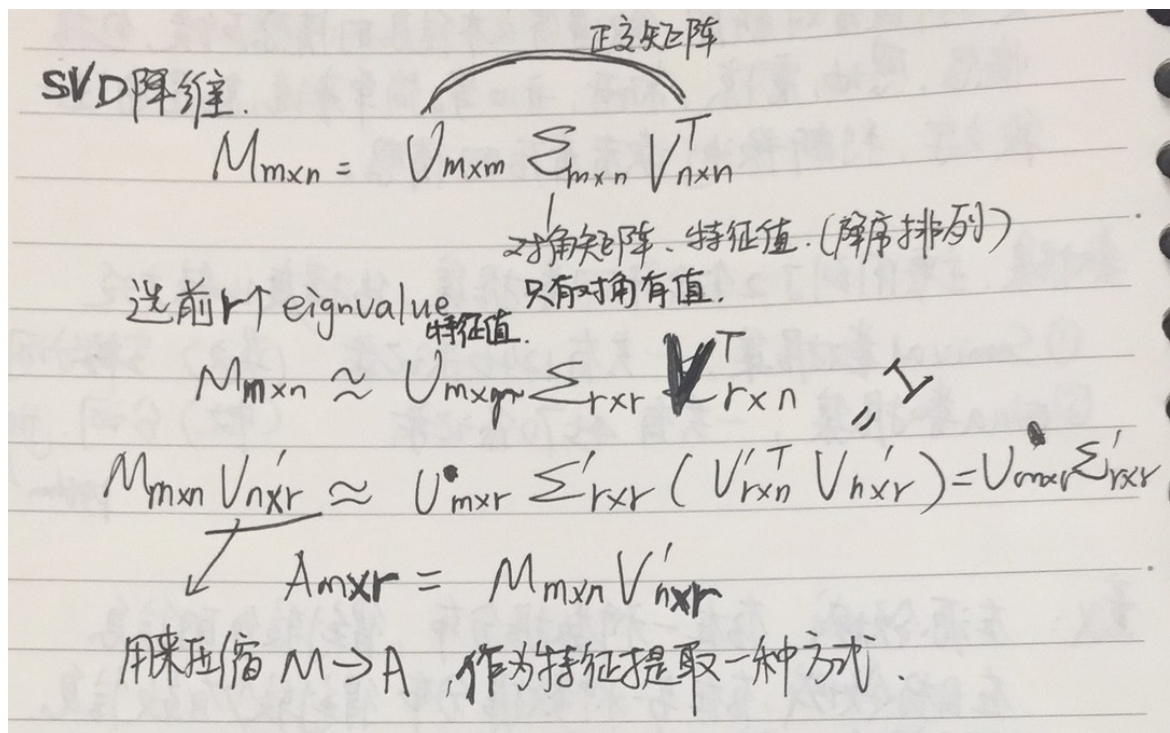 正交矩阵
SVD降维.
M m×n = U m×m Σ m×n V^T n×n
对角矩阵、特征值.(降序排列)
只有对角有值.
选前r个 eignvalue
特征值.
M m×n ≈ U m×r Σ r×r V^T r×n
= I
M m×n V' n×r ≈ U' m×r Σ' r×r ( V'^T r×n V' n×r ) = U' m×r Σ' r×r
A m×r = M m×n V' n×r
用来压缩 M→A ,作为特征提取一种方式.